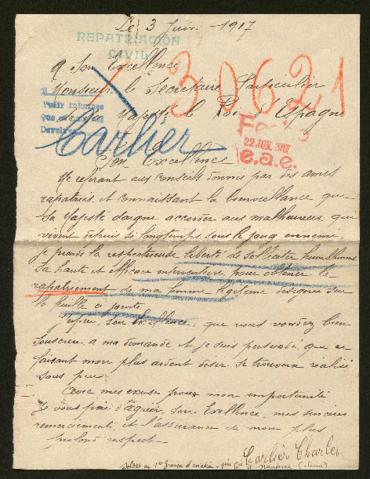 Le 3 Juin 1917
REPATRIACIÓN
CIVIL
A Son Excellence
130621
Monsieur le Secrétaire Particulier
de Sa Majesté le Roi d'Espagne
Carlier
22 JUN. 1917
e.a.e.
Son Excellence
Me referant aux conseils donnés par des amis
rapatriés et connaissant la bienveillance que
Sa Majesté daigne accorder aux malheureux qui
vivent depuis si longtemps sous le joug ennemi
Je prends la respectueuse liberté de solliciter humblement
Sa haute et efficace intervention pour obtenir le
rapatriement de ma femme désignée sur
la feuille ci jointe
J'espère, Son Excellence, que vous voudrez bien
souscrire à ma demande et je suis persuadé que ce
faisant mon plus ardent désir se trouvera réalisé
sous peu.
Avec mes excuses pour mon importunité
Je vous prie d'agréer, Son Excellence, mes sincères
remerciements et l'assurance de mon plus
profond respect.
Carlier Charles